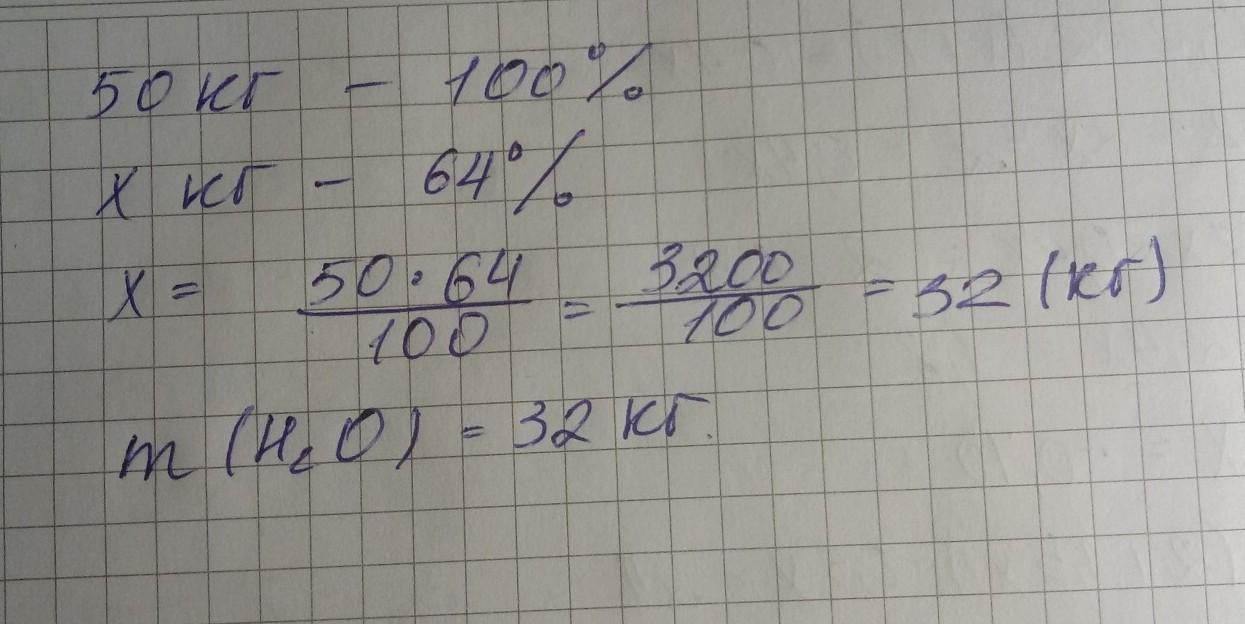 50 кг - 100%
x кг - 64%
x = 50·64/100 = 3200/100 = 32 (кг)
m (H₂O) = 32 кг.